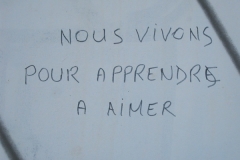 NOUS ViVONS
POUR APPRENDRE
A AiMER